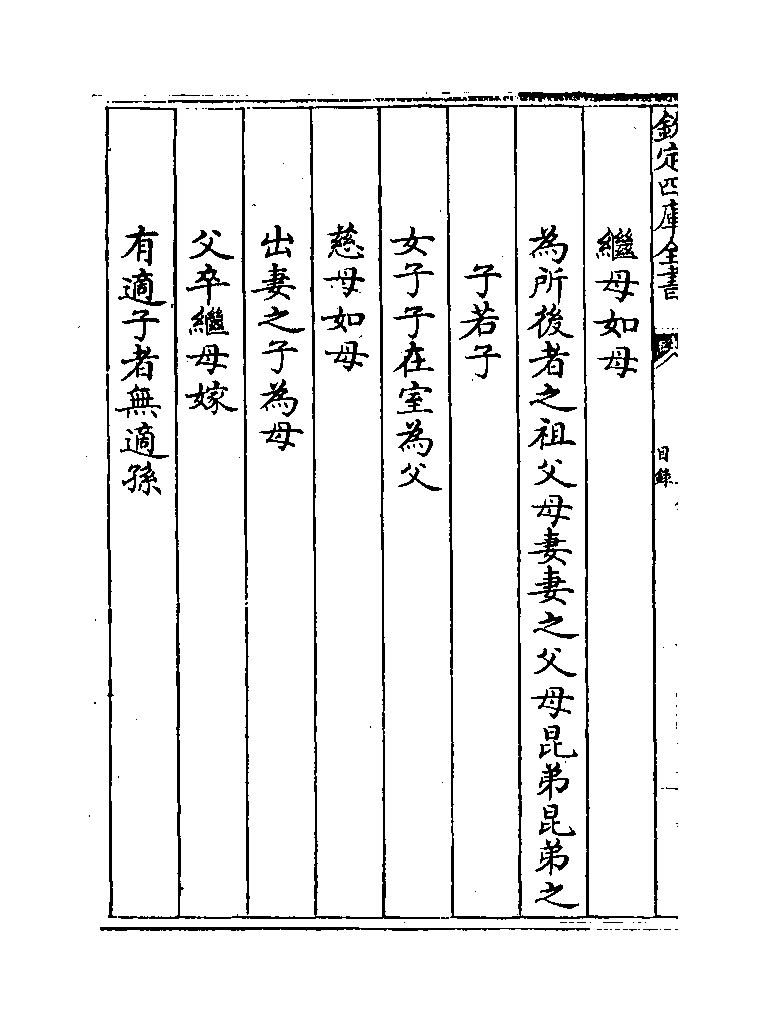 欽定四庫全書
目錄
繼母如母
為所後者之祖父母妻妻之父母昆弟昆弟之
子若子
女子子在室為父
慈母如母
出妻之子為母
父卒繼母嫁
有適子者無適孫